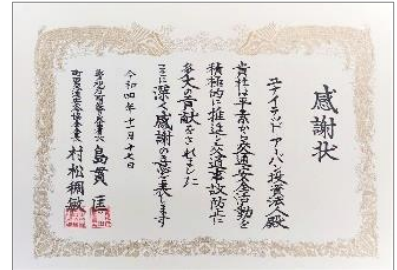 感謝状
ユナイテッド アーバン投資法人殿
貴社は平素から交通安全活動を
積極的に推進し交通事故防止に
多大の貢献をされました
ここに深く感謝の意を表します
令和四年十一月十七日
警視庁町田警察署長 島貫 匡
町田交通安全協会会長 村松 敏